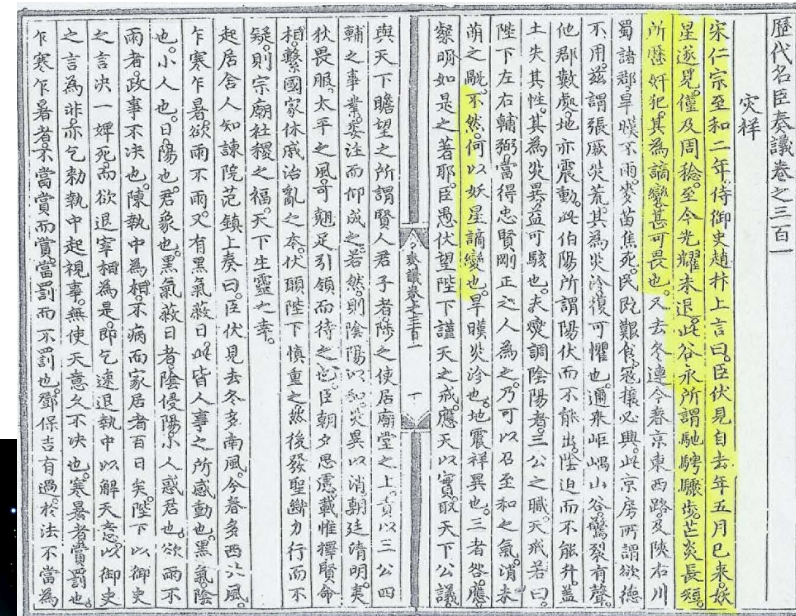 歷代名臣奏議卷之三百一
災祥
宋仁宗至和二年侍御史趙抃上言曰臣伏見自去年五月已來妖
星遂見僅及周稔至今光耀未退此谷永所謂馳騁驟步芒炎長短
所歷奸犯其為謫變甚可畏也又去冬連今春京東西路及陝右川
蜀諸郡旱暵不雨麥苗焦死民既艱食寇攘必興此京房所謂欲德
不用茲謂張厥災荒其為災沴復可懼也邇來岠嵎山谷驚裂有聲
他郡數處地亦震動此伯陽所謂陽伏而不能出陰迫而不能升蓋
土失其性其為災異益可駭也夫燮調陰陽者三公之職天戒若曰
陛下左右輔弼當得忠賢剛正之人為之乃可以召至和之氣消未
萌之眚不然何以妖星謫變也旱暵災沴也地震祥異也三者咎應
粲明如是之著耶臣愚伏望陛下謹天之戒應天以實取天下公議
奏議卷之三百一
一
與天下瞻望之所謂賢人君子者陟之使居廟堂之上責以三公四
輔之事業委注而仰成之若然則陰陽以和災異以消朝廷清明夷
狄畏服太平之風可翹足引領而待之也臣朝夕思慮載惟擇賢命
相繫國家休戚治亂之本伏願陛下慎重之然後發聖斷力行而不
疑則宗廟社稷之福天下生靈之幸
起居舍人知諫院范鎮上奏曰臣伏見去冬多南風今春多西北風
乍寒乍暑欲雨不雨又有黑氣蔽日此皆人事之所感動也黑氣陰
也小人也日陽也君象也黑氣蔽日者陰侵陽小人惑君也欲雨不
雨者政事不決也陳執中為相不病而家居者百日矣陛下以御史
之言決一婢死而欲退宰相為是即乞速退執中以解天意以御史
之言為非亦乞勑執中起視事無使天意久不決也寒暑者賞罰也
乍寒乍暑者不當賞而賞當罰而不罰也鄧保吉有過於法不當為